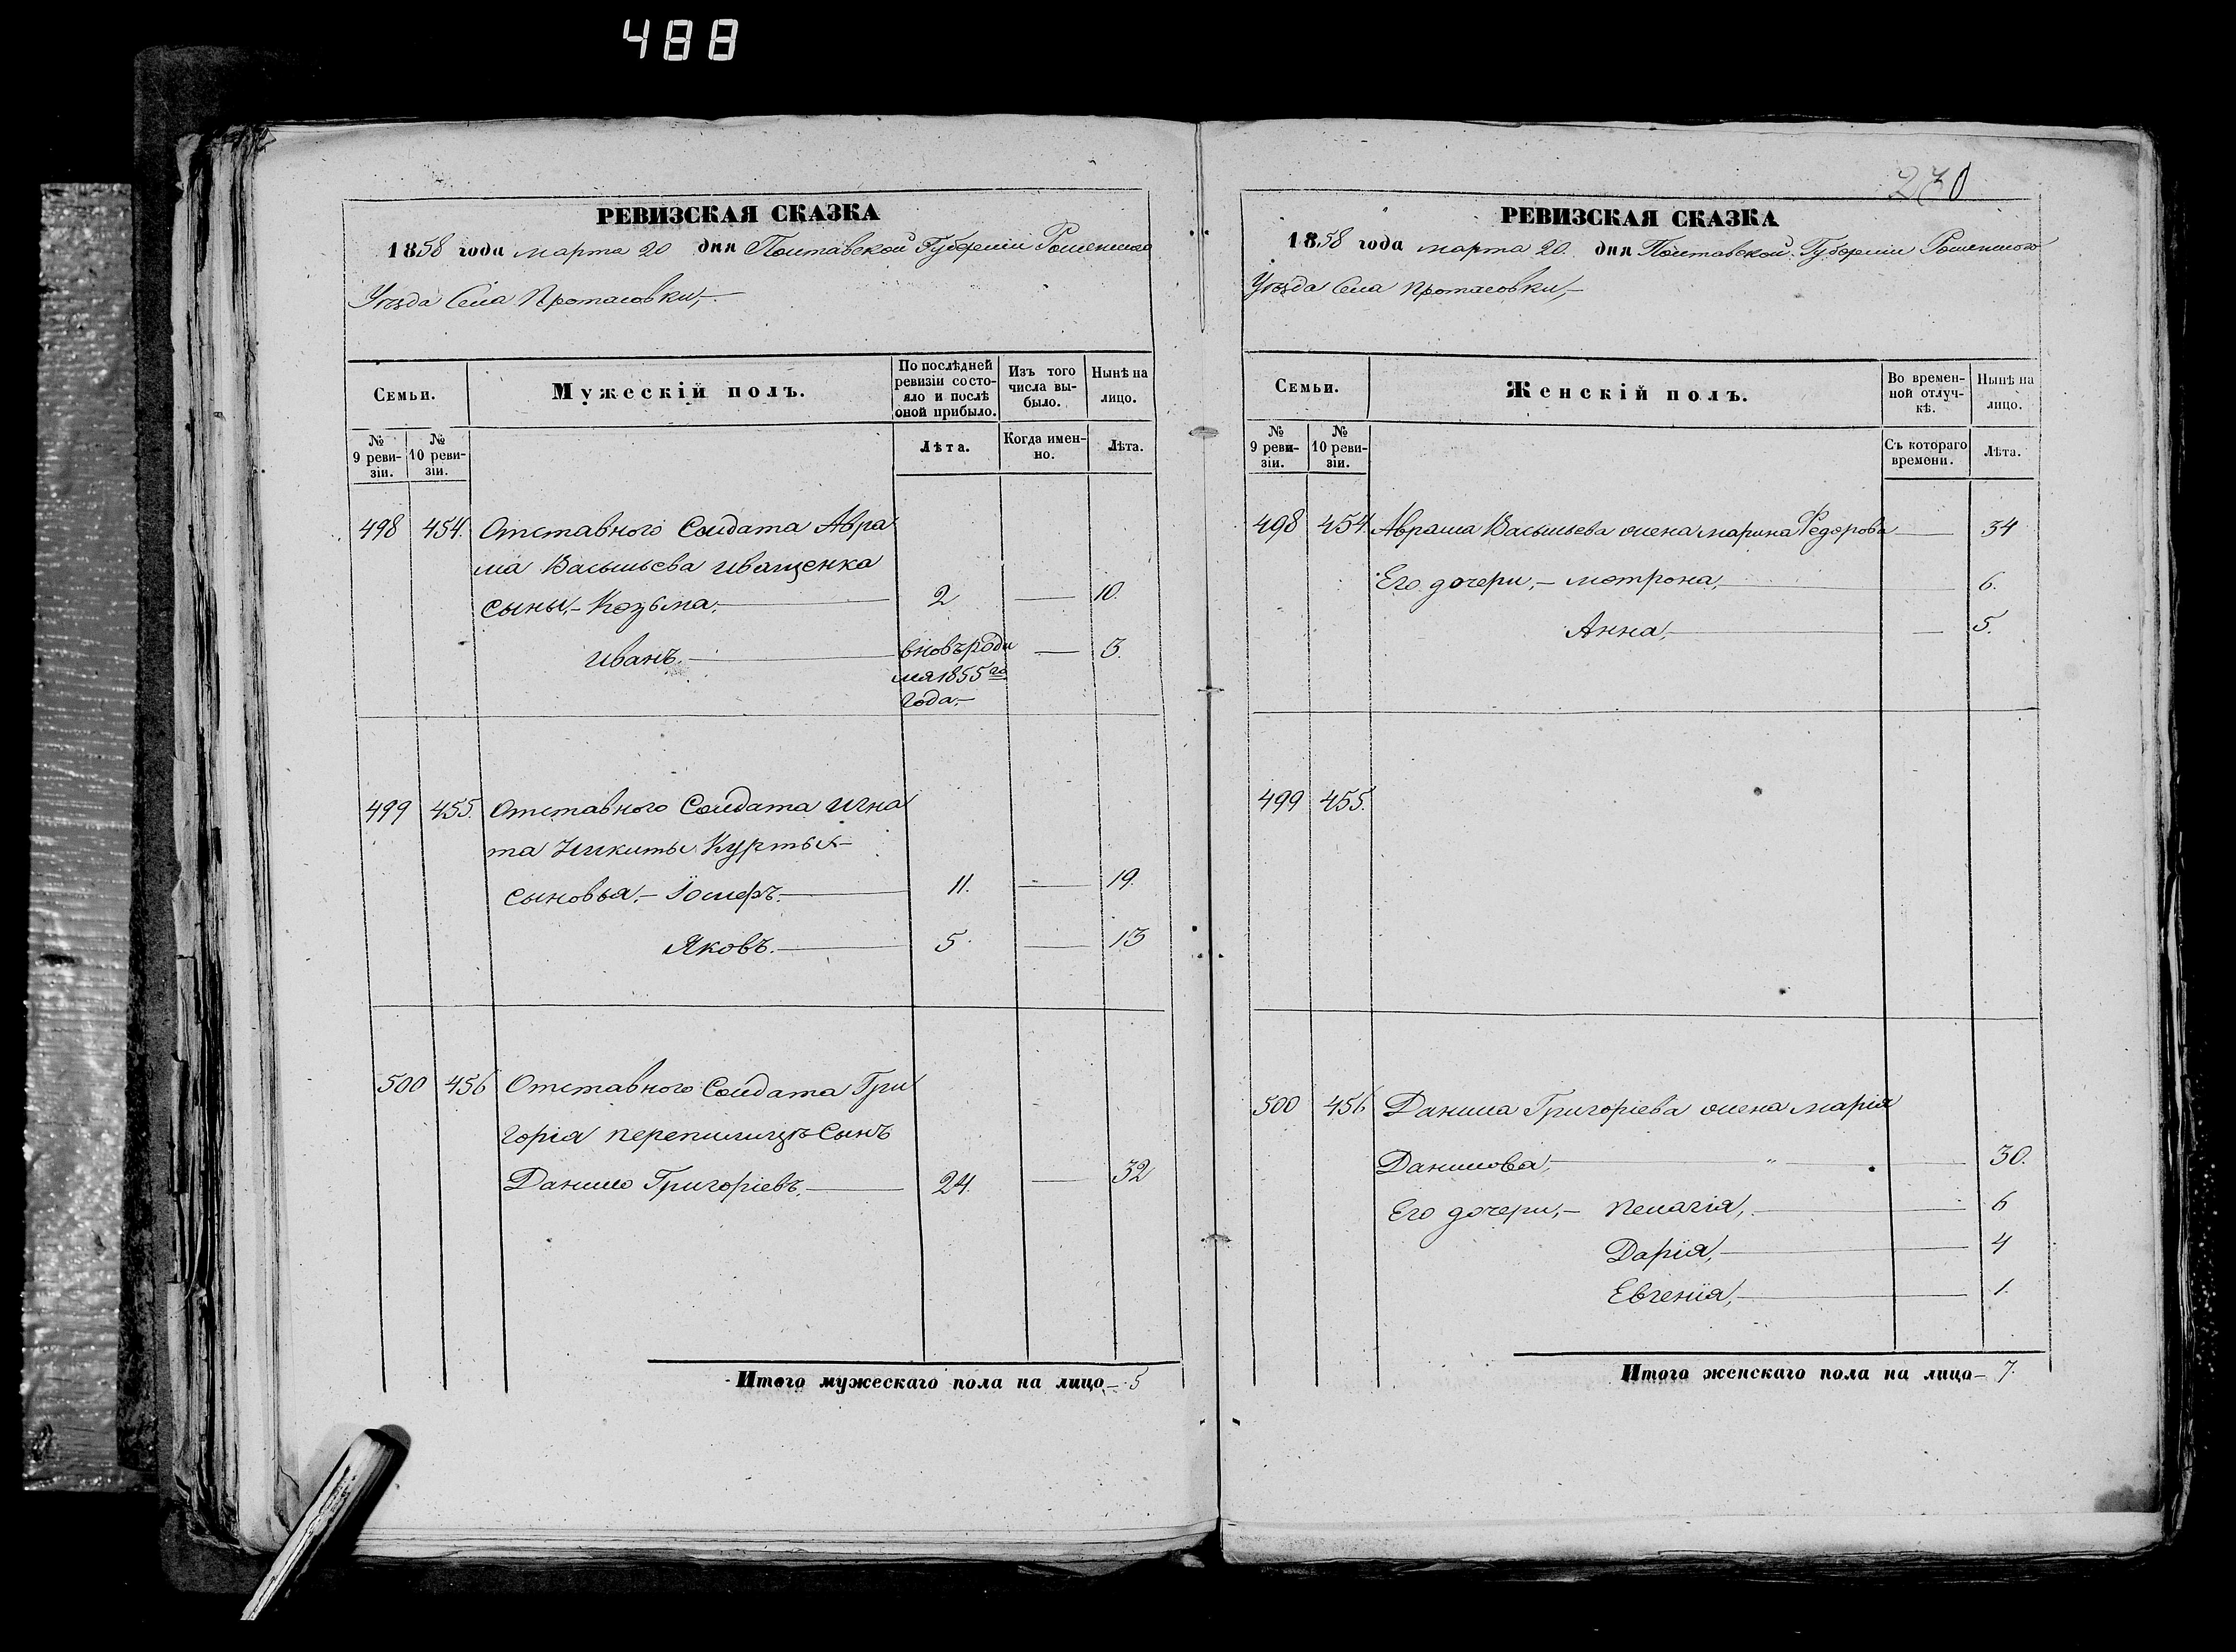 488
РЕВИЗСКАЯ СКАЗКА
1858 года марта 20 дня Полтавской Губерніи Роменскаго
Уѣзда Села Протасовки,—
Семьи.
Мужескій полъ.
По послѣдней ревизіи состояло и послѣ оной прибыло.
Изъ того числа выбыло.
Нынѣ на лицо.
№ 9 ревизіи.
№ 10 ревизіи.
Лѣта.
Когда именно.
Лѣта.
498 454. Отставного Солдата Авра
ма Васильева Иващенка
сыны,— Козьма. 2 — 10.
Иванъ. вновь роди — 3.
лся 1855го
года,—
499 455. Отставного Солдата Игна
та Никиты Курты—
сыновья,— Іосифъ. 11. — 19.
Яковъ. 5. — 13
500 456 Отставного Солдата Гри
горія Сынъ
Данило Григоріевъ. 24. — 32
Итого мужескаго пола на лицо — 5
270
РЕВИЗСКАЯ СКАЗКА
1858 года марта 20. дня Полтавской Губерніи Роменского
Уѣзда Села Протасовки,—
Семьи.
Женскій полъ.
Во временной отлучкѣ.
Нынѣ на лицо.
№ 9 ревизіи.
№ 10 ревизіи.
Съ котораго времени.
Лѣта.
498 454. Аврама Васильева жена марина Федорова — 34
Его дочери,— мотрона, — 6.
Анна, — 5.
499 455.
500 456 Данила Григоріева жена марія
Данилова, " — 30.
Его дочери,— Пелагія, — 6
Дарія, — 4
Евгенія, — 1.
Итого женскаго пола на лицо — 7.